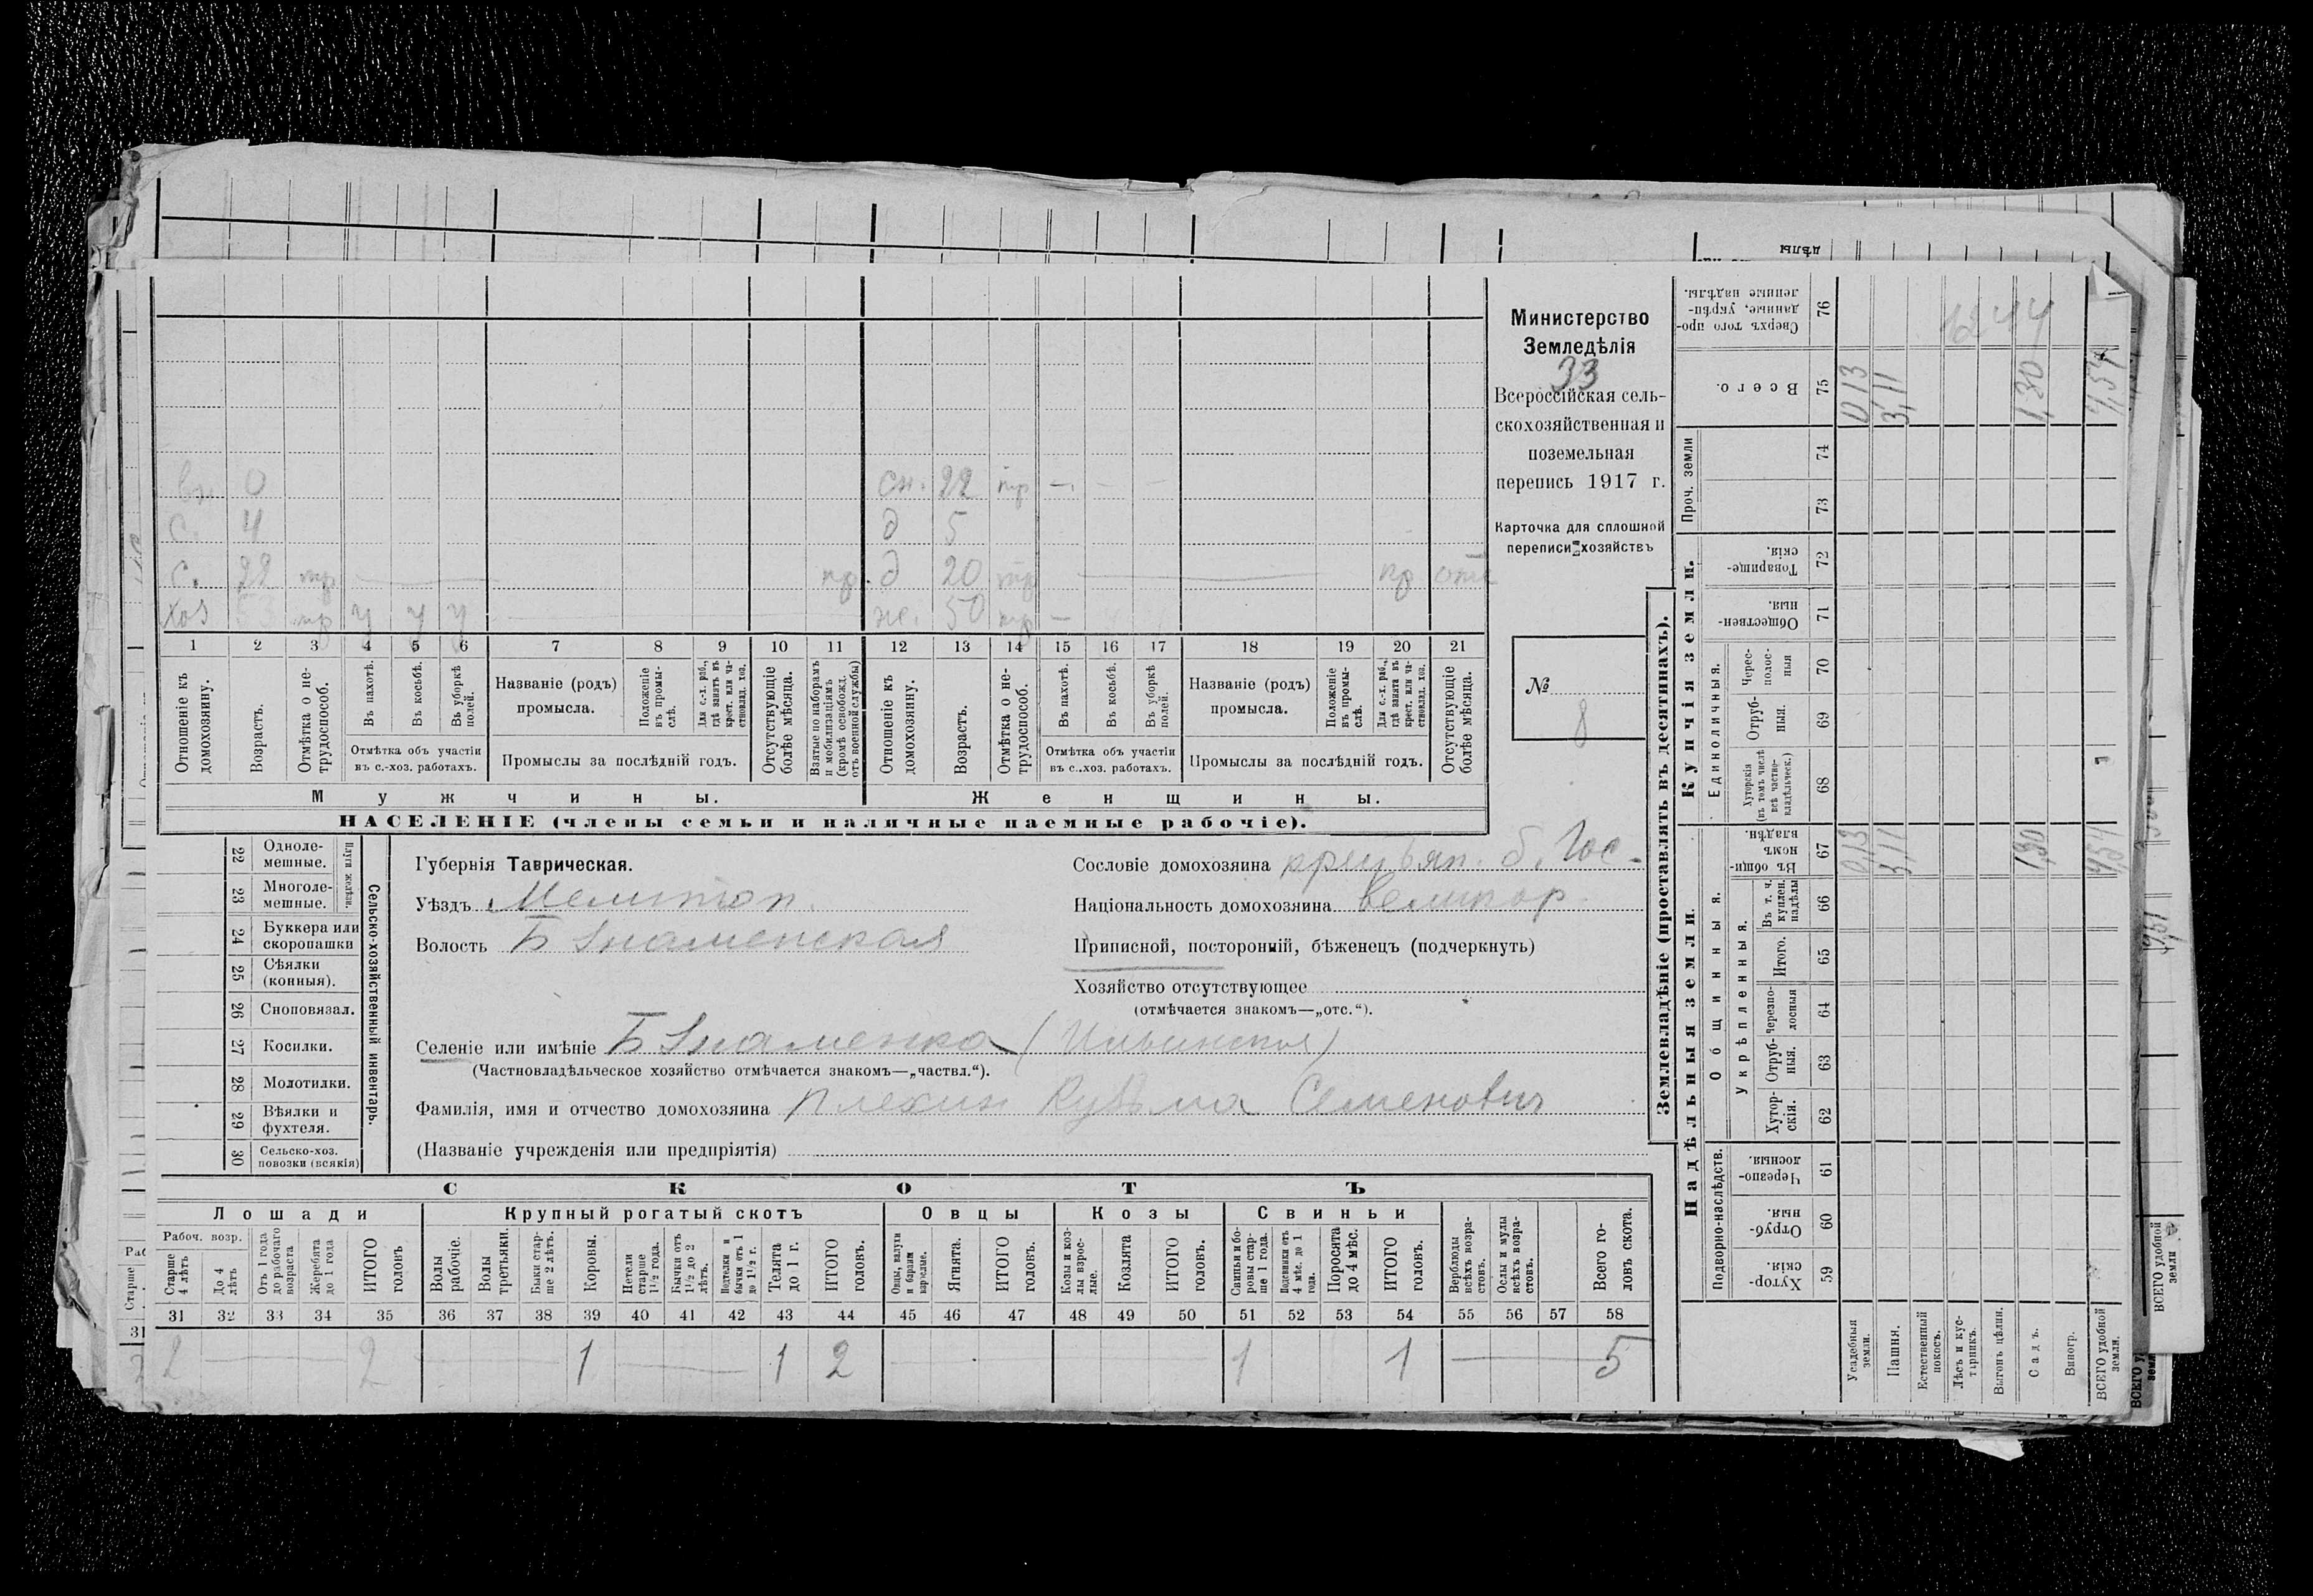 Министерство
Земледѣлія
33
Всероссійская сель-
скохозяйственная и
поземельная
перепись 1917 г.
Карточка для сплошной
переписи хозяйствъ
№
8
0
сн. 22 тр —. — —
с. 4
д 5
с. 22 тр.
пр. д 20 тр
пр отс
хоз тр у у у
же. 50 тр —
1 2 3 4 5 6 7 8 9 10 11 12 13 14 15 16 17 18 19 20 21
Отношеніе къ домохозяину.
Возрастъ.
Отмѣтка о не-трудоспособ.
Въ пахотѣ.
Въ косьбѣ.
Въ уборкѣ полей.
Отмѣтка объ участіи въ с.-хоз. работахъ.
Названіе (родъ) промысла.
Положеніе въ промы-слѣ.
Для с.-х. раб., гдѣ занятъ въ крест. или ча-стновлад. хоз.
Промыслы за послѣдній годъ.
Отсутствующіе болѣе мѣсяца.
Взятые по наборамъ и мобилизаціямъ (кромѣ освобожд. отъ военной службы)
Отношеніе къ домохозяину.
Возрастъ.
Отмѣтка о не-трудоспособ.
Въ пахотѣ.
Въ косьбѣ.
Въ уборкѣ полей.
Отмѣтка объ участіи въ с.-хоз. работахъ.
Названіе (родъ) промысла.
Положеніе въ промы-слѣ.
Для с.-х. раб., гдѣ занята въ крест. или ча-стновлад. хоз.
Промыслы за послѣдній годъ.
Отсутствующіе болѣе мѣсяца.
Мужчины.
Женщины.
НАСЕЛЕНІЕ (члены семьи и наличные наемные рабочіе).
22 Одноле-мешные.
23 Многоле-мешные.
Плуги желѣз.
24 Буккера или скоропашки
25 Сѣялки (конныя).
26 Сноповязал.
27 Косилки.
28 Молотилки.
29 Вѣялки и фухтеля.
30 Сельско-хоз. повозки (всякія)
Сельско-хозяйственный инвентарь.
Губернія Таврическая.
Уѣздъ Мелитоп.
Волость Б Знаменская
Сословіе домохозяина крестьян. б. Гос.
Національность домохозяина Великор.
Приписной, посторонній, бѣженецъ (подчеркнуть)
Хозяйство отсутствующее
(отмѣчается знакомъ—„отс.“).
Селеніе или имѣніе Б Знаменка (Ильинская)
(Частновладѣльческое хозяйство отмѣчается знакомъ—„частвл.“).
Фамилія, имя и отчество домохозяина Плехин Кузьма Семенович
(Названіе учрежденія или предпріятія)
СКОТЪ
Лошади
Крупный рогатый скотъ
Овцы
Козы
Свиньи
Рабоч. возр.
Старше 4 лѣтъ
До 4 лѣтъ
Отъ 1 года до рабочаго возраста
Жеребята до 1 года
ИТОГО головъ
Волы рабочіе.
Волы третьяки.
Быки стар-ше 2 лѣтъ.
Коровы.
Нетели старше 1½ года.
Бычки отъ 1½ до 2 лѣтъ.
Подтелки и бычки отъ 1 до 1½ г.
Телята до 1 г.
ИТОГО головъ.
Овцы, валухи и бараны взрослые.
Ягнята.
ИТОГО головъ.
Козы и коз-лы взрос-лые.
Козлята
ИТОГО головъ.
Свиньи и бо-ровы стар-ше 1 года.
Подсвинки отъ 4 мѣс. до 1 года.
Поросята до 4 мѣс.
ИТОГО головъ.
Верблюды всѣхъ возра-стовъ.
Ослы и мулы всѣхъ возра-стовъ.
Всего го-ловъ скота.
31 32 33 34 35 36 37 38 39 40 41 42 43 44 45 46 47 48 49 50 51 52 53 54 55 56 57 58
2 2 1 1 2 1 1 5
Землевладѣніе (проставлять въ десятинахъ).
Купчія земли.
Надѣльныя земли.
Сверхъ того про-данные, укрѣп-ленные надѣлы. 76
Всего. 75
Проч. земли 74 73
Товарище-скія. 72
Обществен-ныя. 71
Единоличныя.
Черес-полос-ныя 70
Отруб-ныя. 69
Хуторскія (въ томъ числѣ всѣ частно-владѣльческ.) 68
Общинныя.
Въ общи-номъ владѣн. 67
Укрѣпленныя.
Въ т. ч. куплен. надѣлы 66
Итого. 65
Черезпо-лосныя 64
Отруб-ныя. 63
Хутор-скія. 62
Подворно-наслѣдств.
Черезпо-лосныя. 61
Отруб-ныя. 60
Хутор-скія. 59
Усадебныя земли. 0,13 0,13
Пашня. 3,11 3,11
Естественный покосъ.
Лѣсъ и кус-тарникъ.
Выгонъ цѣлин.
Садъ. 1,30 1,30
Виногр.
ВСЕГО удобной земли. 4,54 4,54
ВСЕГО удобной земли